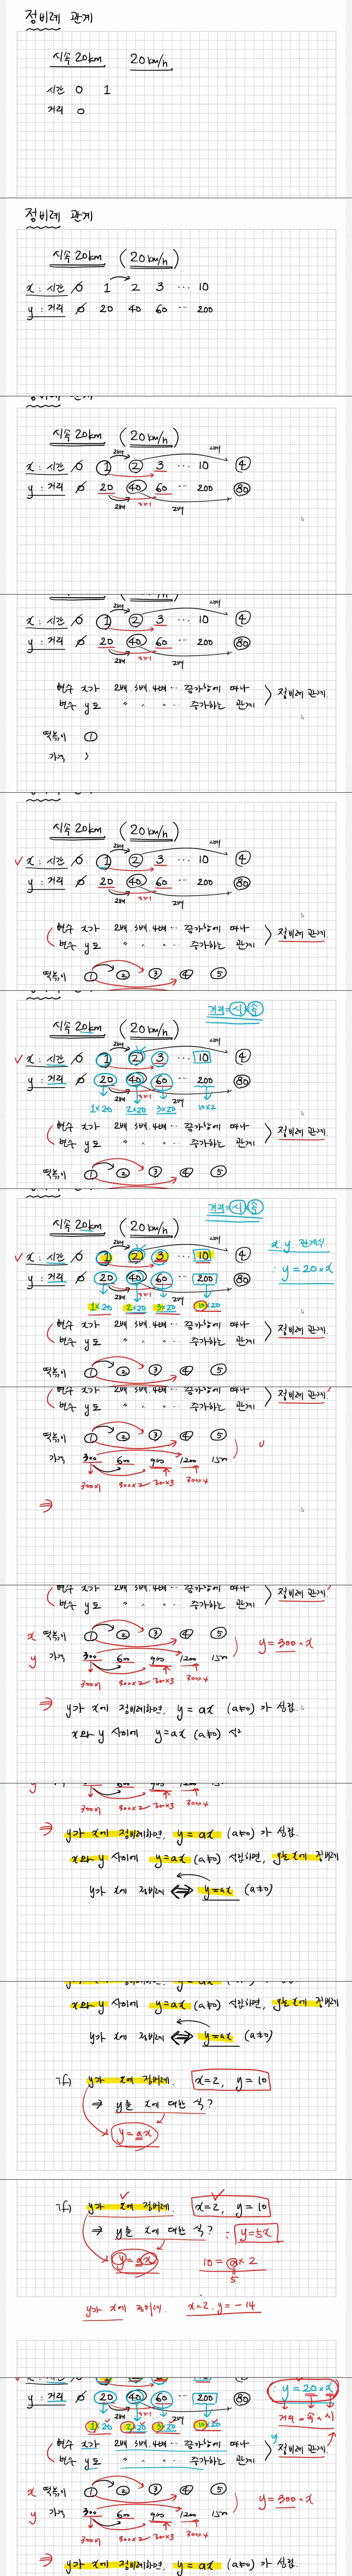 정비례 관계
시속 20km 20km/h
시간 0 1
거리 0
정비례 관계
시속 20km (20km/h)
x : 시간 0 1 2 3 ... 10
y : 거리 0 20 40 60 ... 200
시속 20km (20km/h)
2배
x : 시간 0 1 2 3 ... 10 4
y : 거리 0 20 40 60 ... 200 80
2배 3배 2배
x : 시간 0 1 2 3 ... 10 4
y : 거리 0 20 40 60 ... 200 80
2배 2배
변수 x가 2배, 3배, 4배 ... 증가함에 따라
변수 y도 " " " ... 증가하는 관계 > 정비례 관계.
떡볶이 1
가격
시속 20km (20km/h)
x : 시간 0 1 2 3 ... 10 4
y : 거리 0 20 40 60 ... 200 80
2배 2배
변수 x가 2배, 3배, 4배 ... 증가함에 따라
변수 y도 " " " ... 증가하는 관계 > 정비례 관계.
떡볶이 1 2 3 4 5
거리=시×속
시속 20km (20km/h)
x : 시간 0 1 2 3 ... 10 4
y : 거리 0 20 40 60 ... 200 80
1×20 2×20 3×20 10×2
변수 x가 2배, 3배, 4배 ... 증가함에 따라
변수 y도 " " " ... 증가하는 관계 > 정비례 관계.
떡볶이 1 2 3 4 5
거리=시×속
시속 20km (20km/h) x, y 관계식
x : 시간 0 1 2 3 ... 10 4 : y = 20×x
y : 거리 0 20 40 60 ... 200 80
1×20 2×20 3×20 10×20
변수 x가 2배, 3배, 4배 ... 증가함에 따라
변수 y도 " " " ... 증가하는 관계 > 정비례 관계.
떡볶이 1 2 3 4 5
변수 y도 " " " ... 증가하는 관계 > 정비례 관계.
떡볶이 1 2 3 4 5
가격 300 600 900 1200 1500
300×1 300×2 300×3 300×4
⇒
변수 y도 " " " ... 증가하는 관계 > 정비례 관계.
x 떡볶이 1 2 3 4 5
y 가격 300 600 900 1200 1500 ) y = 300×x
300×1 300×2 300×3 300×4
⇒ y가 x에 정비례하면, y = ax (a≠0) 가 성립.
x와 y 사이에 y=ax (a≠0) 성
300×1 300×2 300×3 300×4
⇒ y가 x에 정비례하면, y = ax (a≠0) 가 성립.
x와 y 사이에 y=ax (a≠0) 성립하면, y는 x에 정비례
y가 x에 정비례 ⇔ y=ax (a≠0)
x와 y 사이에 y=ax (a≠0) 성립하면, y는 x에 정비례
y가 x에 정비례 ⇔ y=ax (a≠0)
y가 x에 정비례. x=2, y=10
⇒ y를 x에 대한 식?
y=ax
y가 x에 정비례. x=2, y=10
⇒ y를 x에 대한 식? : y=5x
y=ax 10 = a × 2
5
y가 x에 정비례. x=2, y=-14
: y = 20×x
y : 거리 0 20 40 60 ... 200 80
1×20 2×20 3×20 10×20 거리 = 속×시
변수 x가 2배, 3배, 4배 ... 증가함에 따라
변수 y도 " " " ... 증가하는 관계 > 정비례 관계.
x 떡볶이 1 2 3 4 5
y 가격 300 600 900 1200 1500 ) y = 300×x
300×1 300×2 300×3 300×4
⇒ y가 x에 정비례하면, y = ax (a≠0) 가 성립.